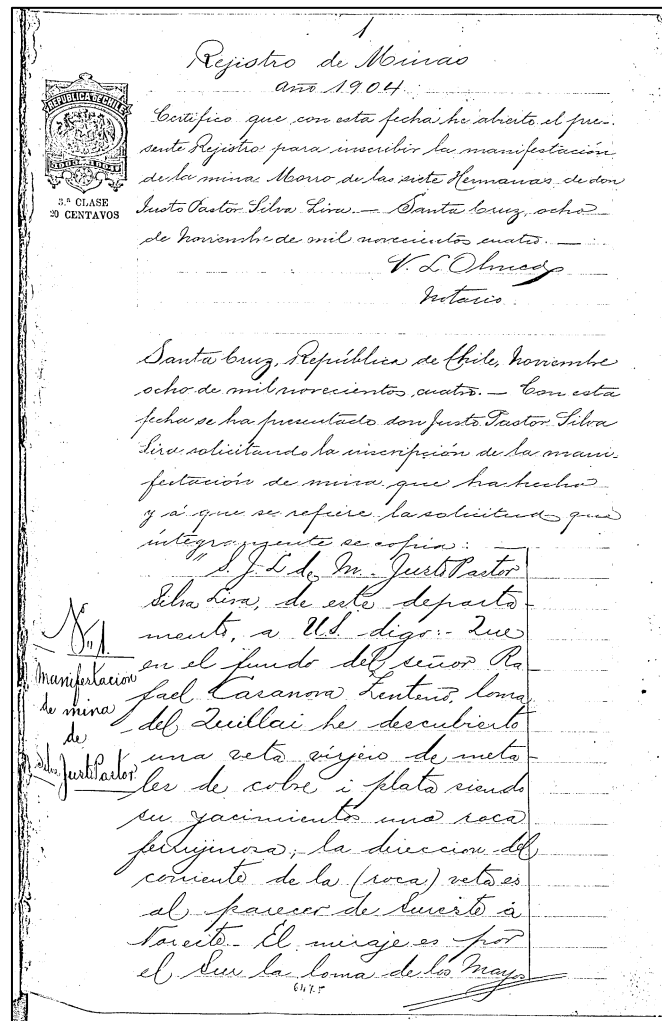 1
Rejistro de Minas
año 1904.
REPUBLICA DE CHILE
3.ª CLASE
20 CENTAVOS
Certifico que con esta fecha he abierto el pre-
sente Rejistro para inscribir la manifestación
de la mina Morro de las siete Hermanas de don
Justo Pastor Silva Lira. — Santa Cruz, ocho
de Noviembre de mil novecientos cuatro. —
V. L. Olmedo
Notario
Santa Cruz, República de Chile, Noviembre
ocho de mil novecientos cuatro. — Con esta
fecha se ha presentado don Justo Pastor Silva
Lira solicitando la inscripción de la mani-
festación de mina que ha hecho
y á que se refiere la solicitud que
íntegramente se copia:
"S. J. L. de M. Justo Pastor
Silva Lira, de este departa-
mento, a U.S. digo:- Que
en el fundo del señor Ra-
fael Casanova Zenteno, loma
del Quillai he descubierto
una veta vírjen de meta-
les de cobre i plata siendo
su yacimiento una roca
ferrujinosa; la direccion del
corriente de la (roca) veta es
al parecer de Sureste á
Noreste- El miraje es por
el Sur la loma de los Mayos
Nº 1.
Manifestacion
de mina
de
Silva Justo Pastor